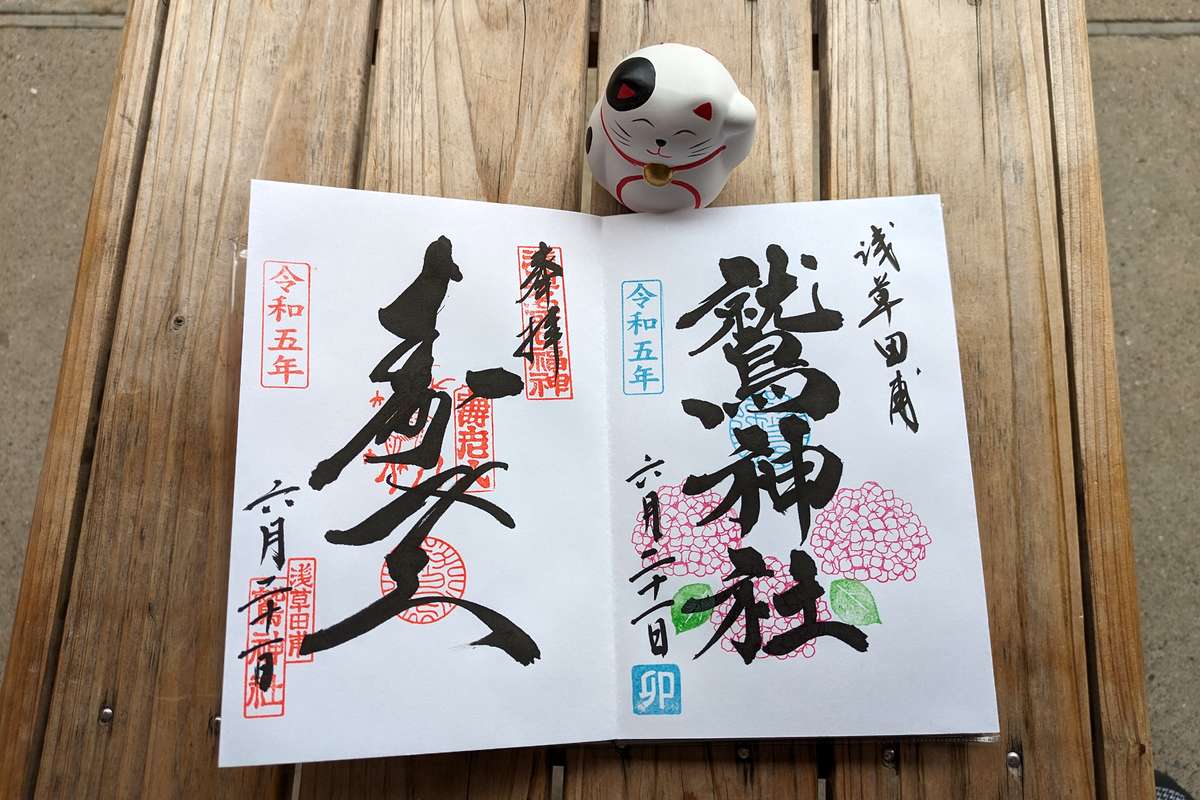 浅草田甫
鷲神社
令和五年
六月二十一日
卯
奉拝
福神
寿老人
令和五年
六月二十一日
浅草田甫
鷲神社